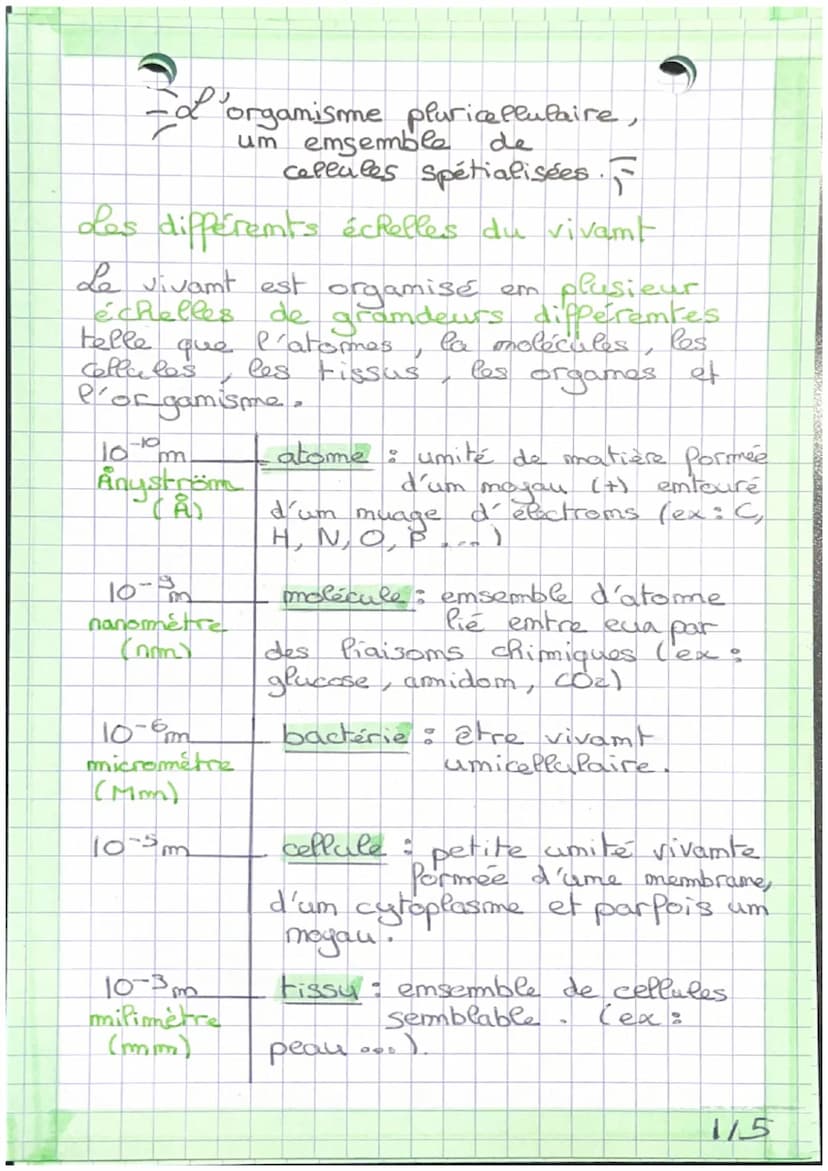 L'organisme pluricellulaire,
un ensemble de
cellules spétialisées.
Les différents échelles du vivant
Le vivant est organisé en plusieur
échelles de grandeurs différentes
telle que l'atomes, la molécules, les
cellules, les tissus, les organes et
l'organisme.
10-10m
Ångström
(Å)
atome : unité de matière formée
d'un noyau (+) entouré
d'un nuage d'électrons (ex : C,
H, N, O, P ...)
10-9m
nanomètre
(nm)
molécule : ensemble d'atome
lié entre eux par
des liaisons chimiques (ex :
glucose, amidon, CO2)
10-6m
micromètre
(Mm)
bactérie : être vivant
unicellulaire.
10-5m
cellule : petite unité vivante
formée d'une membrane,
d'un cytoplasme et parfois un
noyau.
10-3m
milimètre
(mm)
tissu : ensemble de cellules
semblable. (ex :
peau ...).
1/5